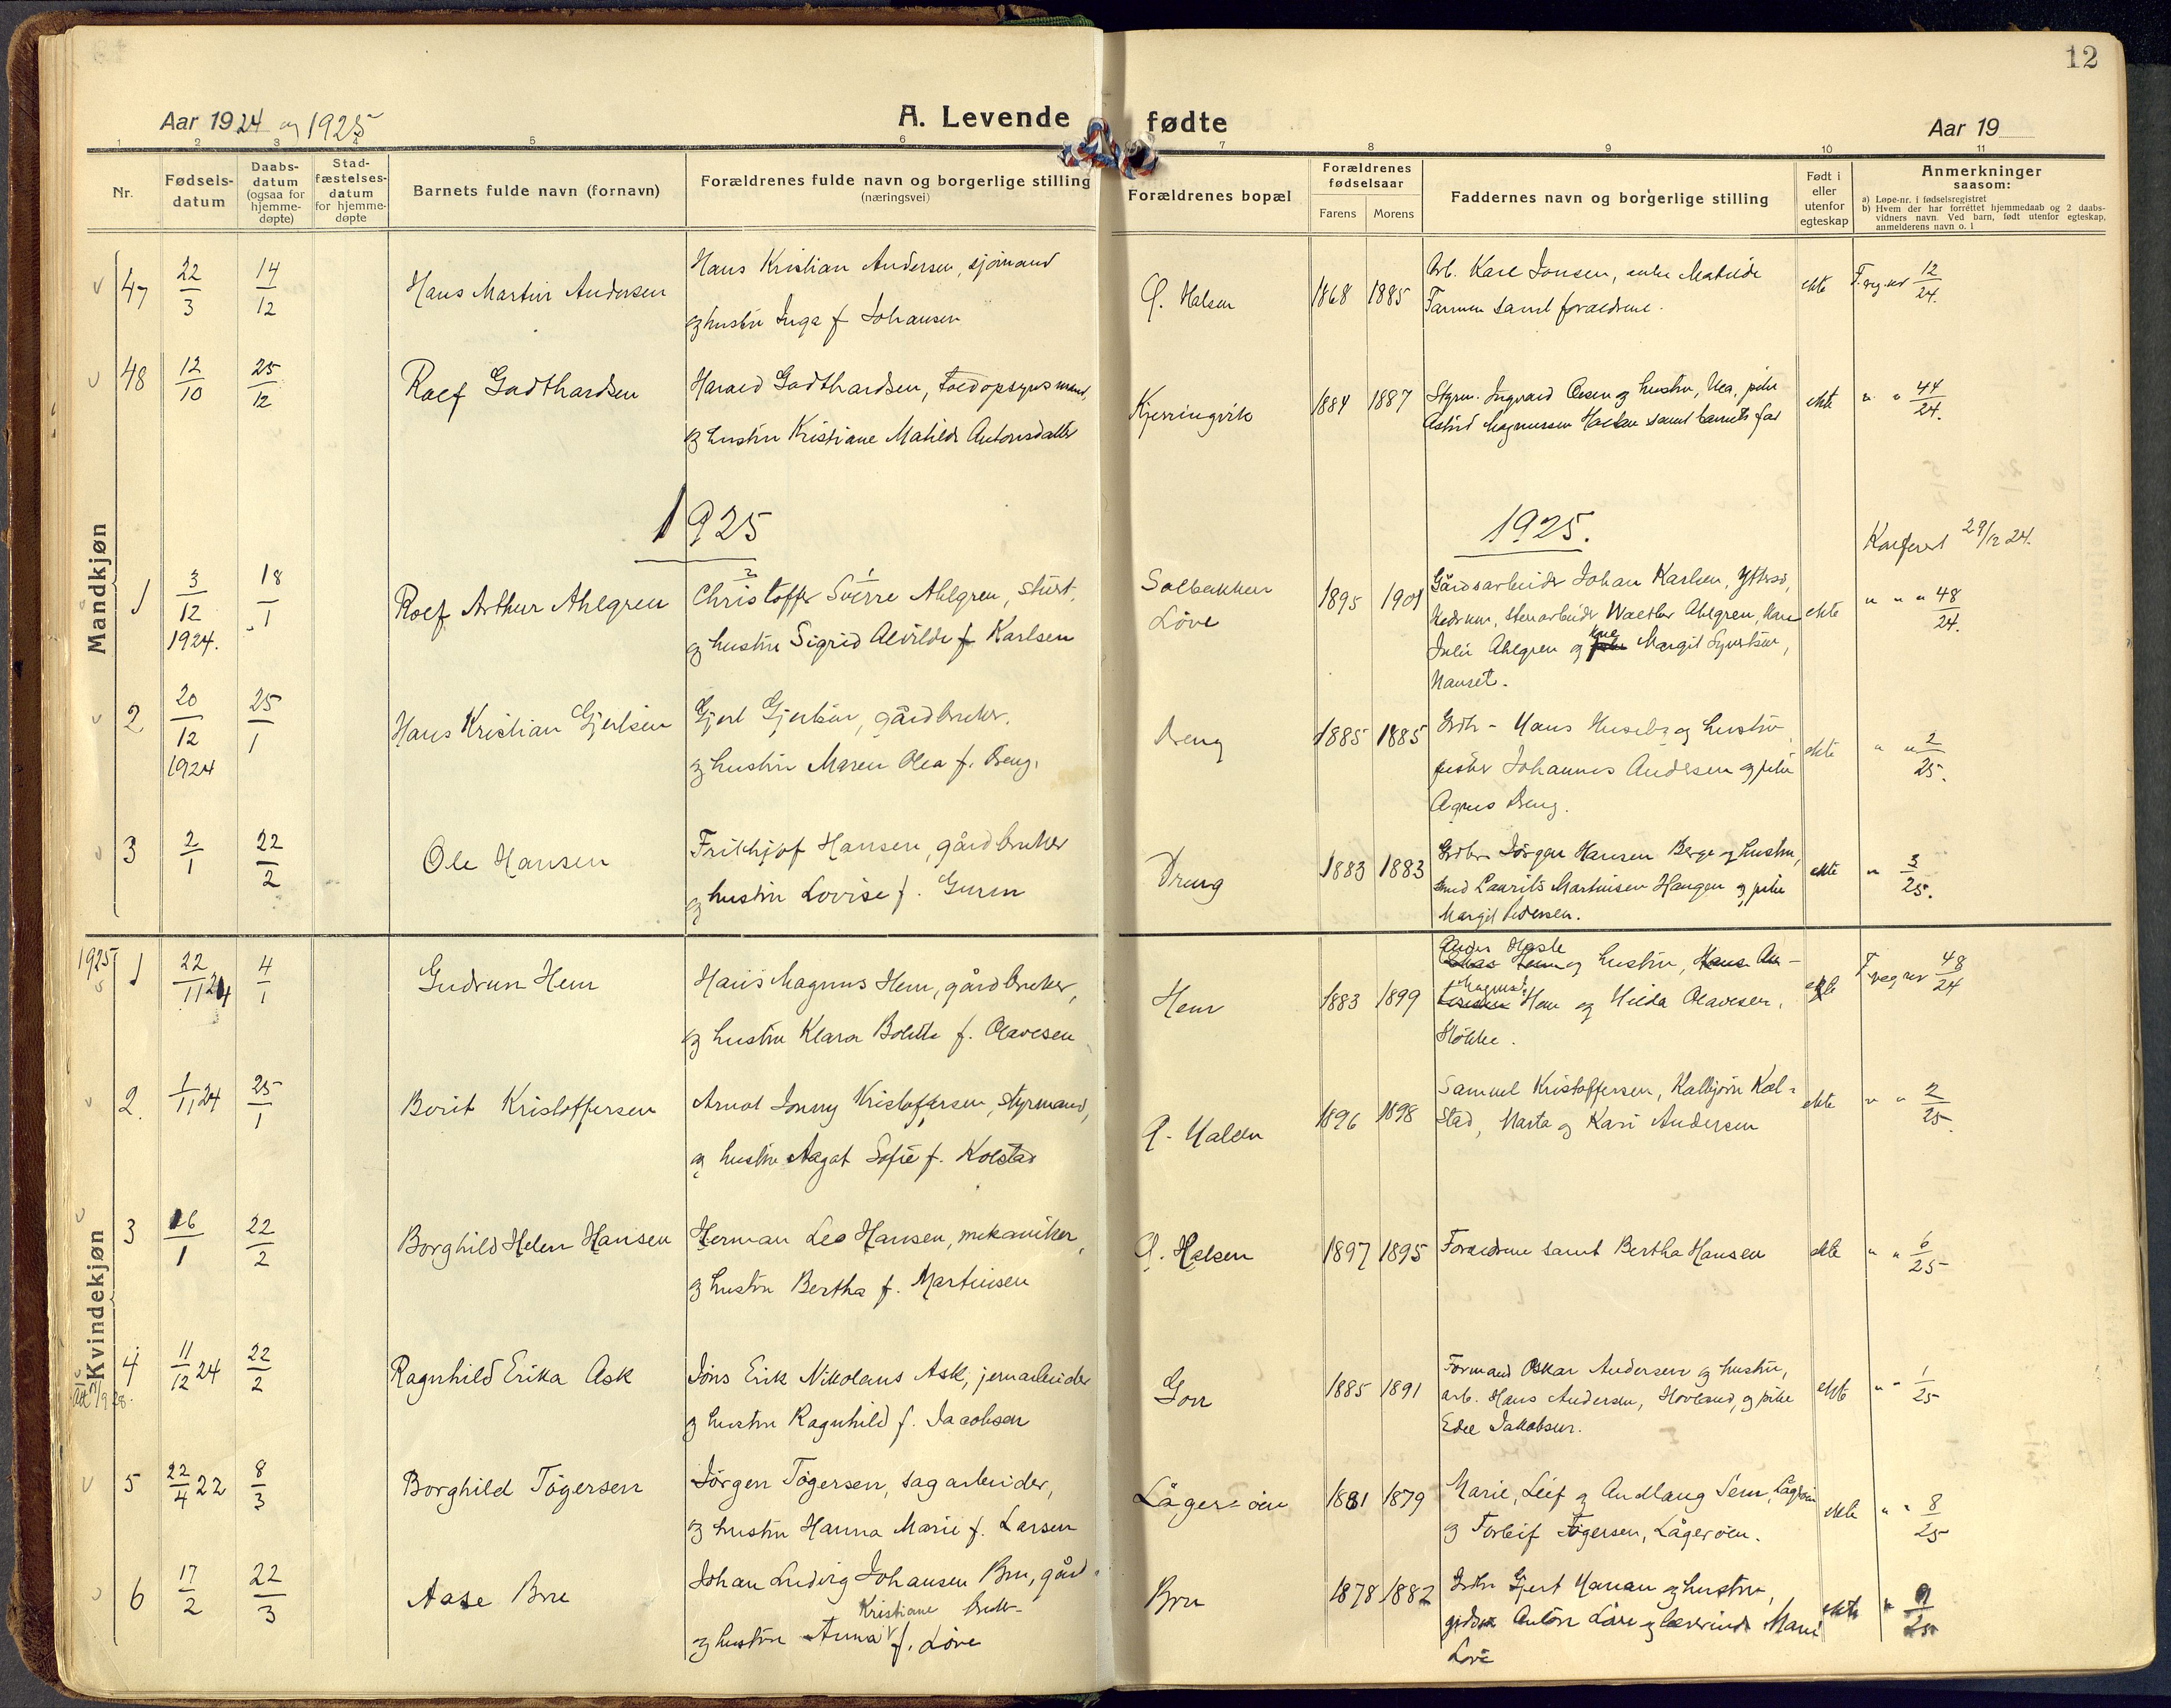 12
Aar 1924 og 1925
A. Levende fødte
Aar 19
1 2 3 4 5 6 7 8 9 10 11
Nr.
Fødsels-
datum
Daabs-
datum
(ogsaa for
hjemme-
døpte)
Stad-
fæstelses-
datum
for hjemme-
døpte
Barnets fulde navn (fornavn)
Forældrenes fulde navn og borgerlige stilling
(næringsvei)
Forældrenes bopæl
Forældrenes
fødselsaar
Farens Morens
Faddernes navn og borgerlige stilling
Født i
eller
utenfor
egteskap
Anmerkninger
saasom:
a) Løpe-nr. i fødselsregistret
b) Hvem der har forrettet hjemmedaab og 2 daabs-
vidners navn. Ved barn, født utenfor egteskap,
anmelderens navn o. l
Mandkjøn
47 22/3 14/12
Hans Martin Andersen
Hans Kristian Andersen, sjømand
og hustru Inga f Johansen
Ø. Halsen
1868 1885
Arb. Karl Jonsen, enke Matilde
Farmen samt forældrene.
ekte
F. reg. nr 12/24.
48 12/10 25/12
Rolf Godthardsen
Harald Godthardsen, toldopsynsmand,
og hustru Kristiane Matilde Antonsdatter
Kjerringvik
1884 1887
Styrm. Ingvald Olsen og hustru, Nea, pike
Astrid Magnussen Halsen samt barnets far
ekte
" " 44/24.
1925
1925.
Konferert 29/12 24.
1 3/12 1924. 18/1
Rolf Arthur Ahlgren
2 1
Christoffer Sverre Ahlgren, stuert,
og hustru Sigrid Alvilde f Karlsen
Solbakken
Løve
1895 1901
Gårdsarbeider Johan Karlsen, Ytterso,
Hedrum, stenarbeider Walter Ahlgren, kone
Julie Ahlgren og kone Margit Syvertsen,
Nanset.
ekte
" " " 48/24.
2 20/12 1924 25/1
Hans Kristian Gjertsen
Gjert Gjertsen, gårdbruker,
og hustru Maren Olea f. Dreng.
Dreng
1885 1885
Grdbr - Hans Huseby og hustru
fisker Johannes Andersen og pike
Agnes Dreng.
ekte
" " 2/25.
3 2/1 22/2
Ole Hansen
Frithjof Hansen, gårdbruker
og hustru Lovise f. Guren
Dreng
1883 1883
Grdbr Jörgen Hansen Berge og hustru,
smed Laurits Martinsen Haugen og pike
Margit Pedersen.
ekte
" 3/25.
Kvindekjøn
1925
1 22/11 24 4/1
Gudrun Hem
Hans Magnus Hem, gårdbruker,
og hustru Klara Bolette f. Olavesen
Hem
1883 1899
Hasle
og hustru,
Magnus Hem og Hilda Olavesen,
Stokke.
ekte
F. reg nr 48/24
2. 1/11 24 25/1
Berit Kristoffersen
Arnot Jonny Kristoffersen, styrmand,
og hustru Aagot Sofie f. Kolstad
Ø. Halsen
1896 1898
Samuel Kristoffersen, Kolbjørn Kol-
stad, Marta og Kari Andersen
ekte
" " 2/25.
3 26/1 22/2
Borghild Helen Hansen
Herman Leo Hansen, mekaniker,
og hustru Bertha f. Martinsen
Ø. Halsen
1897 1895
Forældrene samt Bertha Hansen
ekte
" " 6/25
4 11/12 24 22/2
Ragnhild Erika Ask
Jöns Erik Nikolaus Ask, jernarbeider
og hustru Ragnhild f. Jacobsen
Gon
1885 1891
Formand Oskar Andersen og hustru,
arb. Hans Andersen, Hovland, og pike
Edel Jakobsen.
ekte
" " 1/25
5 22/4 22 8/3
Borghild Tögersen
Jörgen Tögersen, sagarbeider,
og hustru Hanna Marie f. Larsen
Lågerøen
1881 1879
Marie, Leif og Audlaug Sem, Lågerøen
og Torleif Tögersen, Lågerøen.
ekte
" " 8/25
6 17/2 22/3
Aase Bru
Johan Ludvig Johansen Bru, gård-
Kristiane bruker
og hustru Anna f. Löve
Bru
1878 1882
Grdbr Gjert Hanan og hustru,
grdbr Anton Löve og lærerinde Marie
Löve
ekte
" 9/25